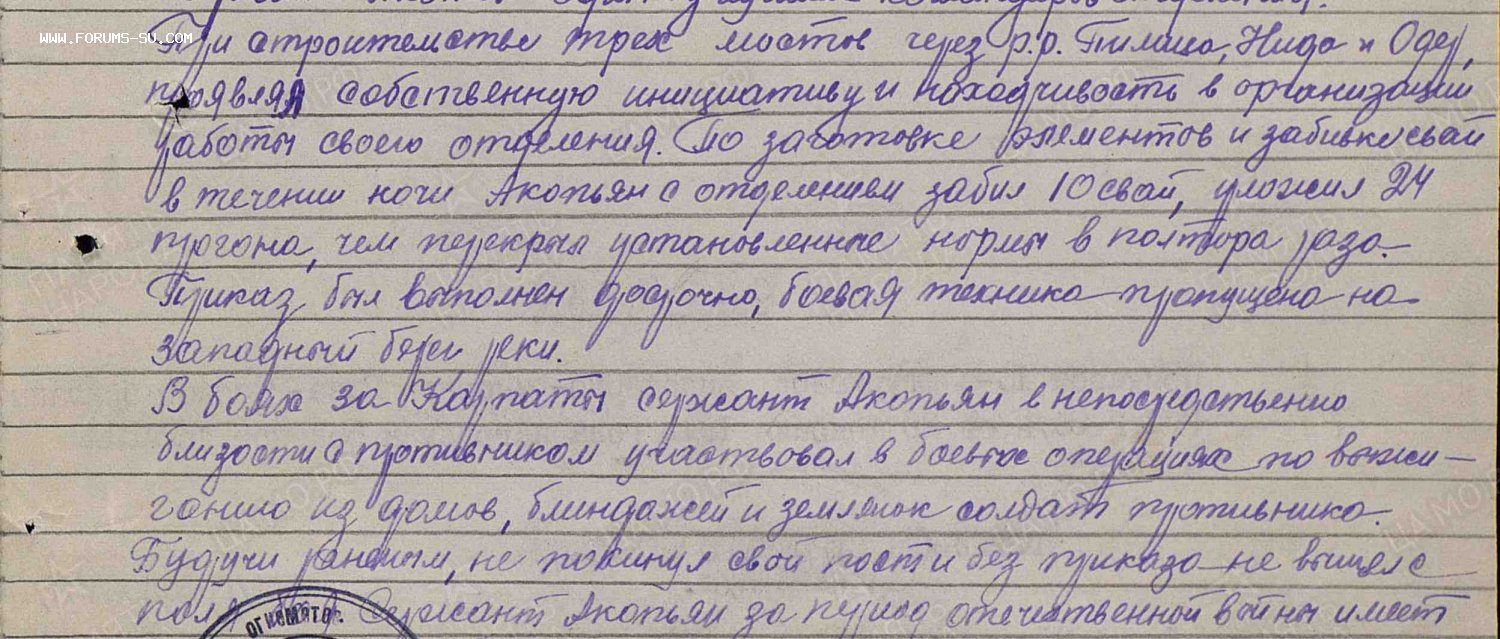 командиров отделения.
WWW.FORUMS-SU.COM
При строительстве трех мостов через р.р. Пилица, Нида и Одер,
проявляя собственную инициативу и находчивость в организации
работы своего отделения. По заготовке элементов и забивке свай
в течении ночи Акопьян с отделением забил 10 свай, уложил 24
прогона, чем перекрыл установленные нормы в полтора раза.
Приказ был выполнен досрочно, боевая техника пропущена на
западный берег реки.
В боях за Карпаты сержант Акопьян в непосредственно
близости с противником участвовал в боевых операциях по выжи-
ганию из домов, блиндажей и землянок солдат противника.
Будучи раненым, не покинул свой пост и без приказа не вышел с
поля Сержант Акопьян за период отечественной войны имеет